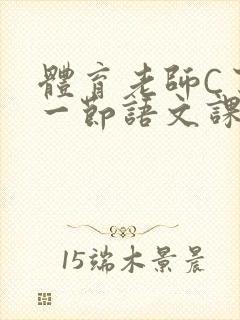 體育老師C
一節語文課
15端木景晨